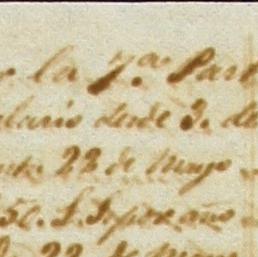 la 7.ª Part
lario desde 3. de
22 de Mayo
50. S. S. por año
22 de